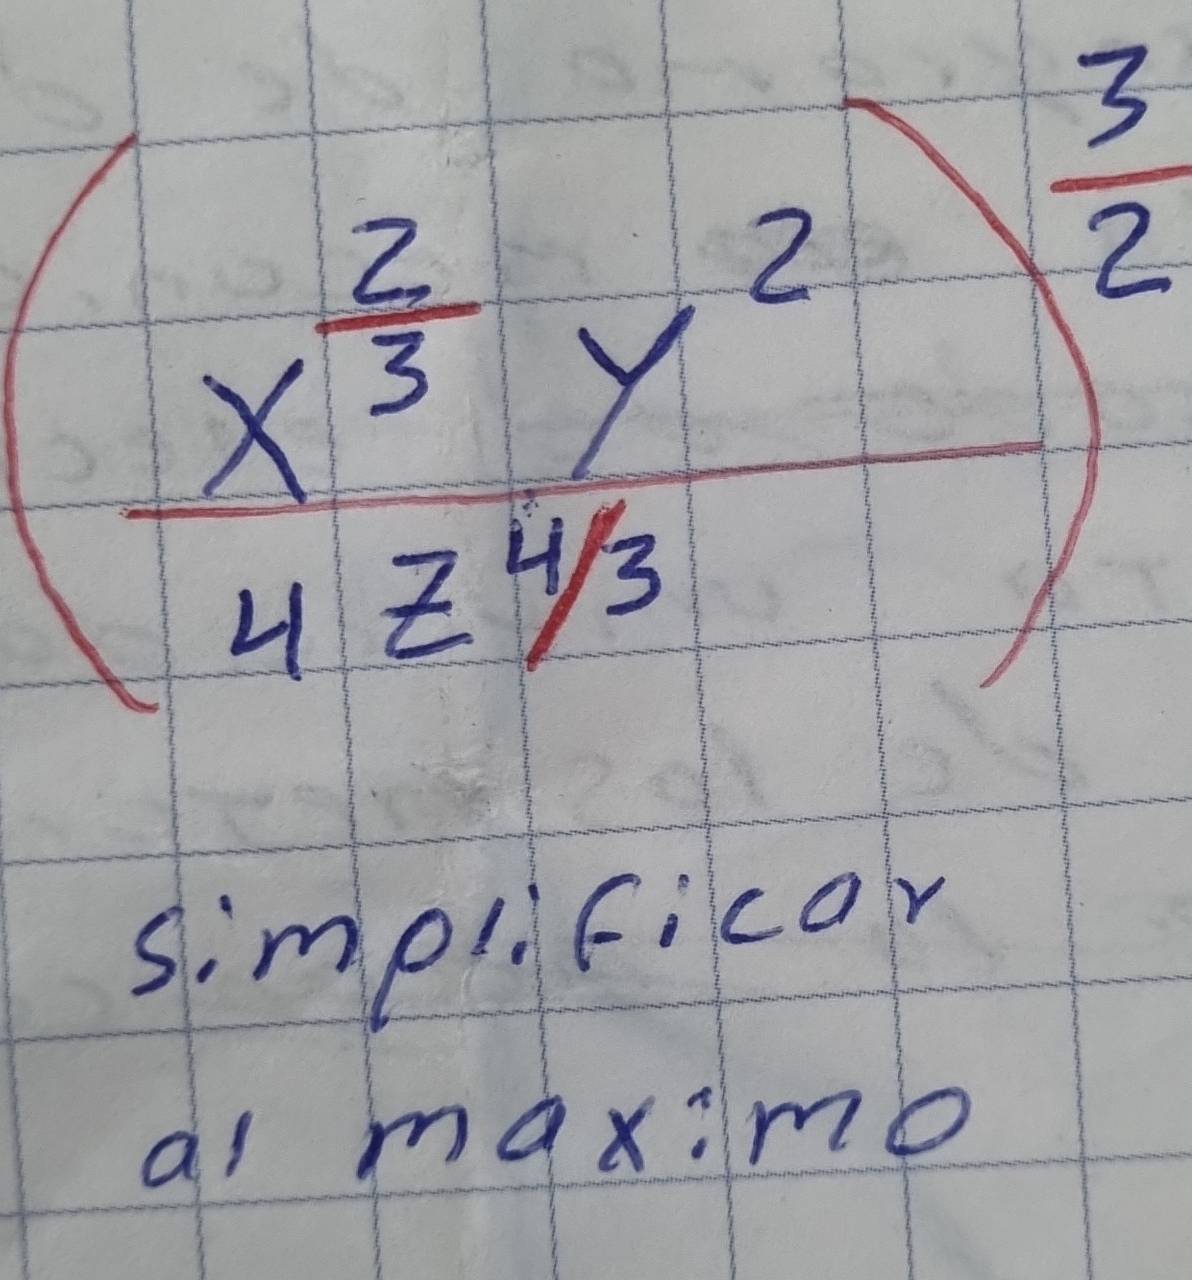 (X^(2/3) Y^2 / 4 Z^(4/3))^(3/2)
simplificar
al maximo